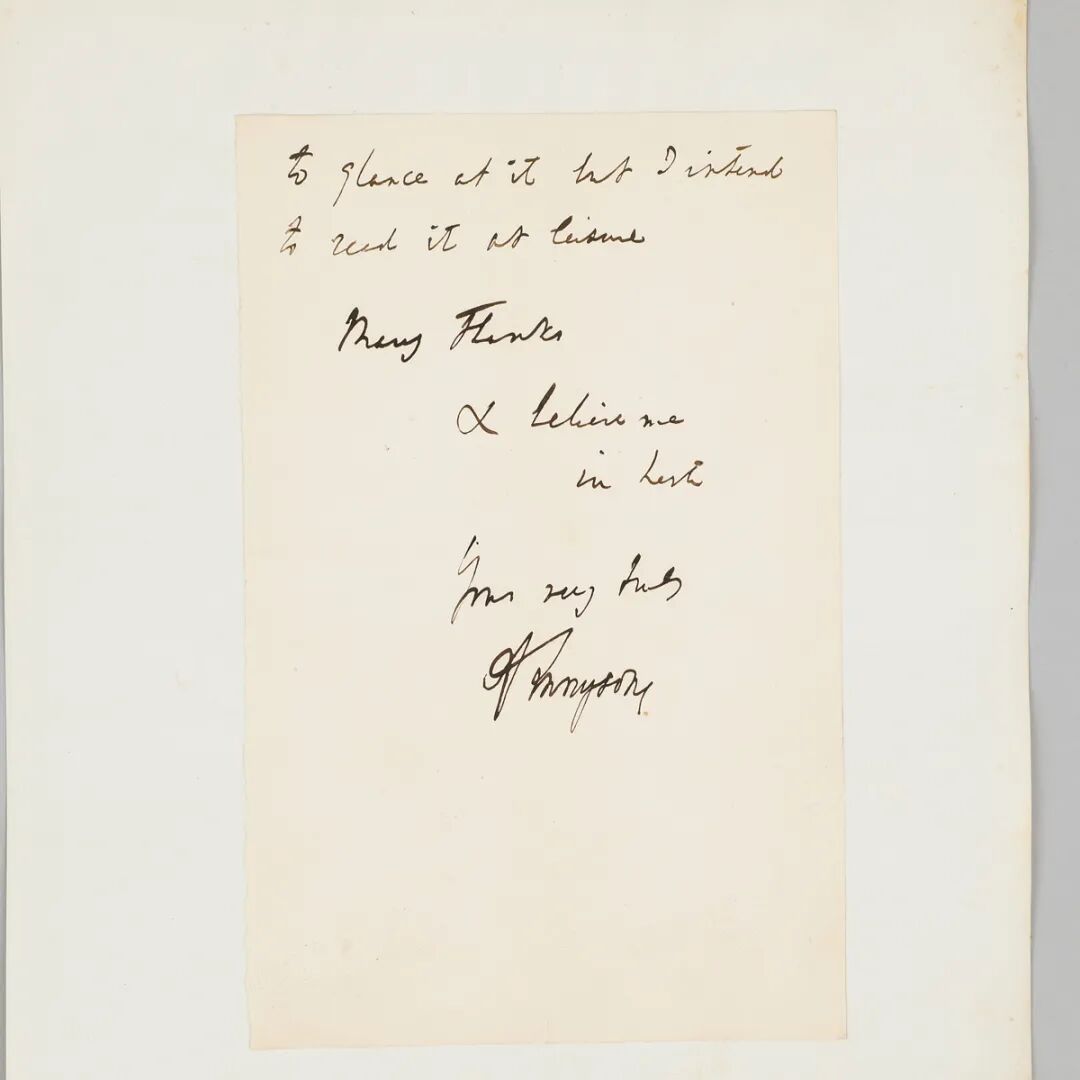 to glance at it but I intend
to read it at leisure
Many Thanks
& believe me
in haste
Yours very truly
A Tennyson